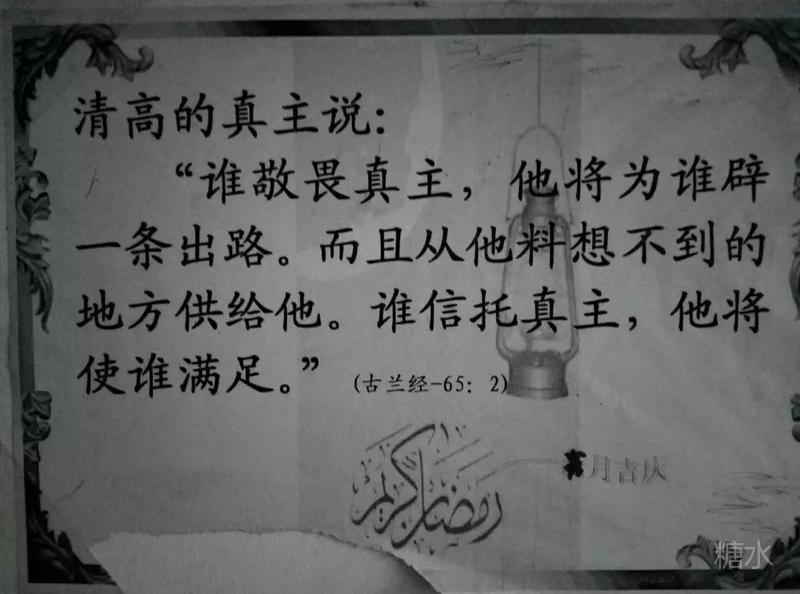 清高的真主说：
“谁敬畏真主，他将为谁辟
一条出路。而且从他料想不到的
地方供给他。谁信托真主，他将
使谁满足。”（古兰经-65：2）
رمضان كريم
月吉庆
糖水